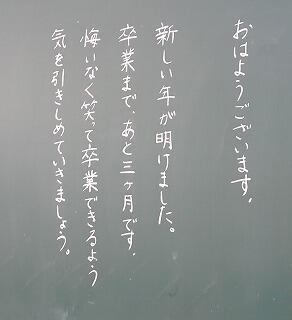 おはようございます。
新しい年が明けました。
卒業まで、あと三ヶ月です。
悔いなく笑って卒業できるよう
気を引きしめていきましょう。